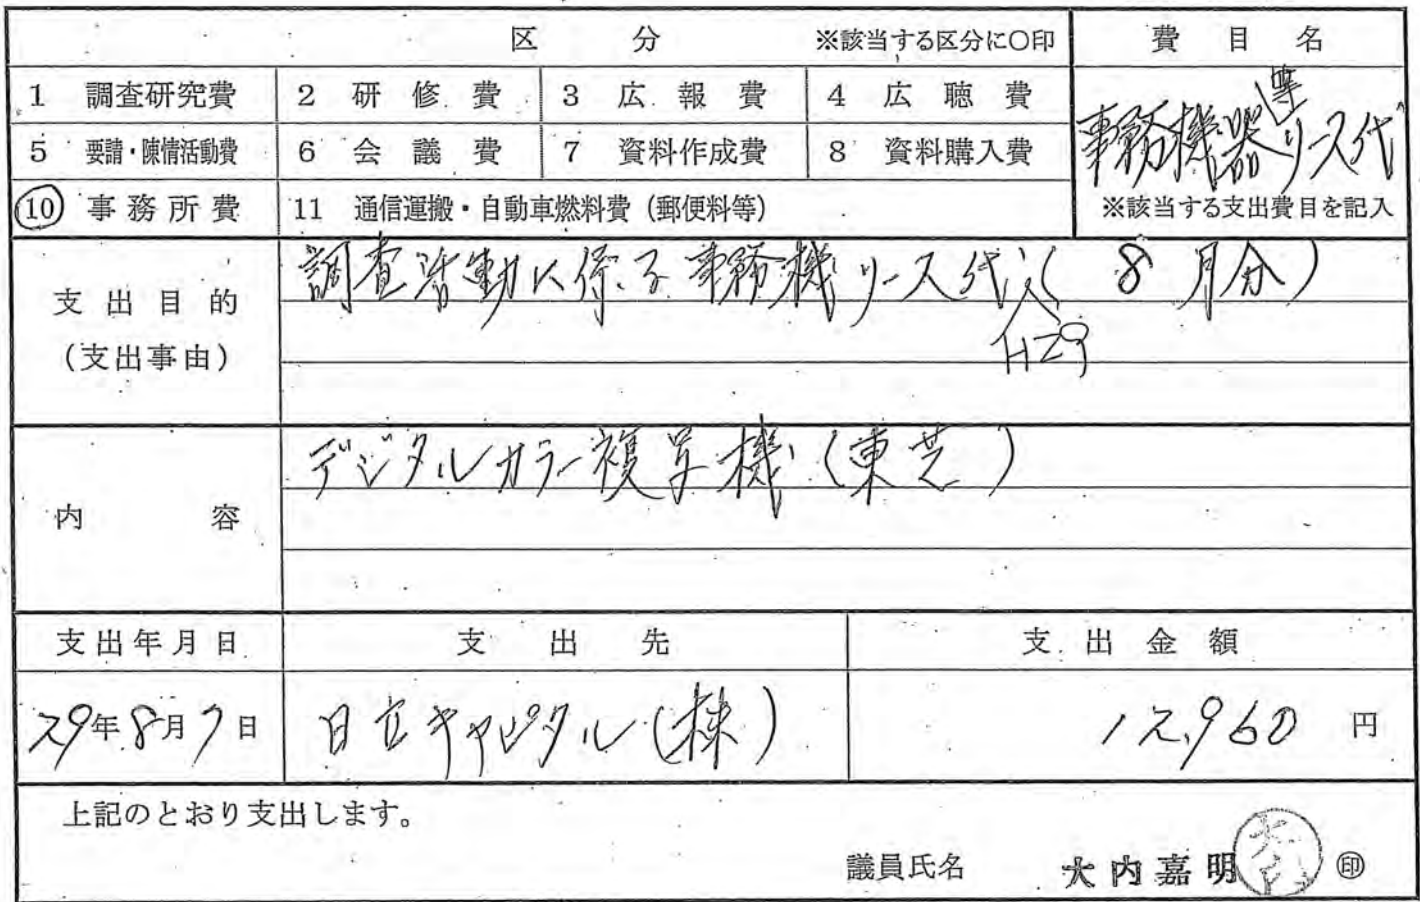 区 分 ※該当する区分に○印
費 目 名
1 調査研究費 2 研 修 費 3 広 報 費 4 広 聴 費
5 要請・陳情活動費 6 会 議 費 7 資料作成費 8 資料購入費
⑩ 事務所費 11 通信運搬・自動車燃料費（郵便料等）
事務機器等リース代
※該当する支出費目を記入
支出目的
（支出事由）
調査活動に係る事務機リース代（H29 8月分）
内 容
デジタルカラー複写機（東芝）
支出年月日 支 出 先 支 出 金 額
29年8月7日 日立キャピタル（株） 12,960 円
上記のとおり支出します。
議員氏名 大内嘉明 大内 ㊞